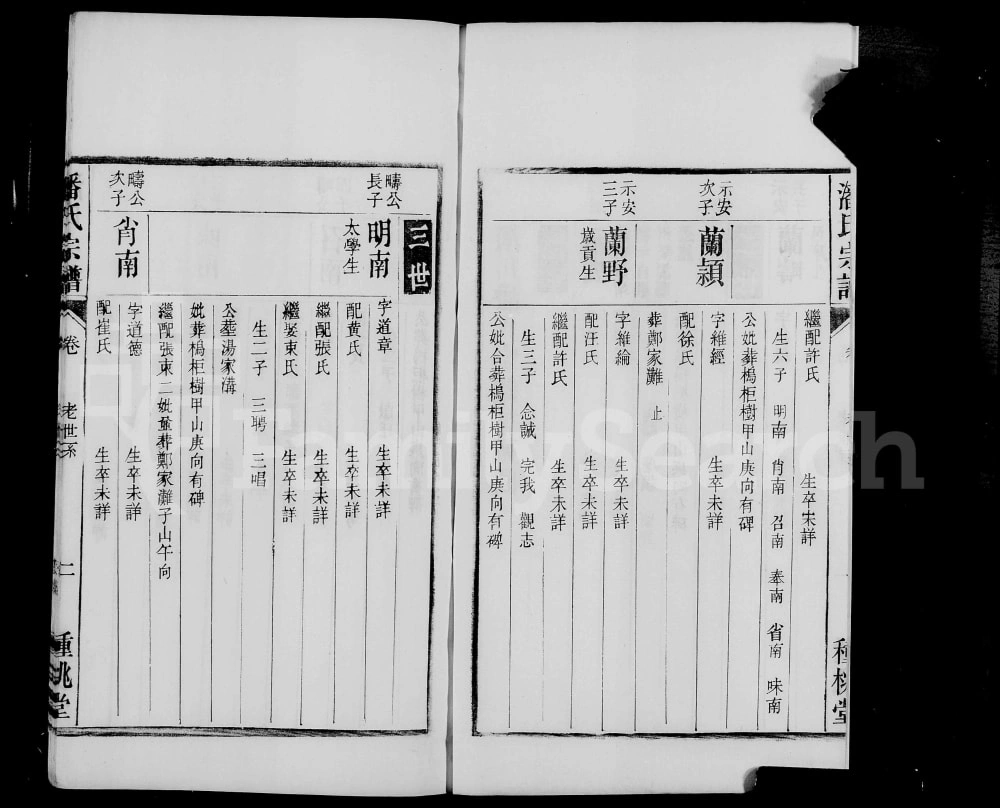 潘氏宗譜
種桃堂
繼配許氏 生卒未詳
生六子 明南 肖南 召南 奉南 省南 味南
公妣葬楬柜樹甲山庚向有碑
示安次子
蘭穎
字維經 生卒未詳
配徐氏
葬鄭家灘 止
示安三子
蘭野
歲貢生
字維綸 生卒未詳
配汪氏 生卒未詳
繼配許氏 生卒未詳
生三子 念誠 完我 觀志
公妣合葬楬柜樹甲山庚向有碑
三世
疇公長子
明南
太學生
字道章 生卒未詳
配黃氏 生卒未詳
繼配張氏 生卒未詳
繼娶東氏 生卒未詳
生二子 三聘 三唱
公葬湯家溝
妣葬楬柜樹甲山庚向有碑
繼配張東二妣並葬鄭家灘子山午向
疇公次子
肖南
字道德 生卒未詳
配崔氏 生卒未詳
潘氏宗譜 卷 老世系 二 種桃堂
FamilySearch